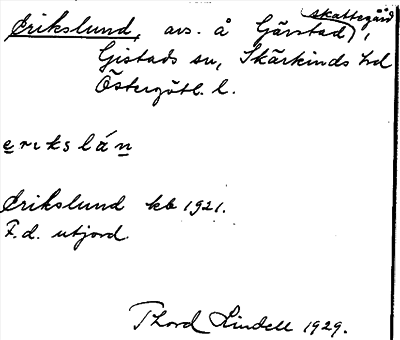 Erikslund, avs. å Gärstad skattegård,
Gistads sn, Skärkinds hd
Östergötl. l.
erikslán
Erikslund kb 1921.
F.d. utjord.
Thord Lindell 1929.